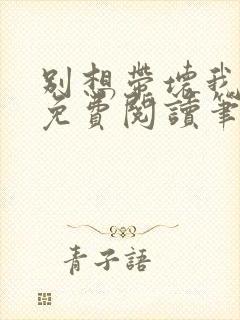 別想帶壞我
免費閱讀筆
青子語